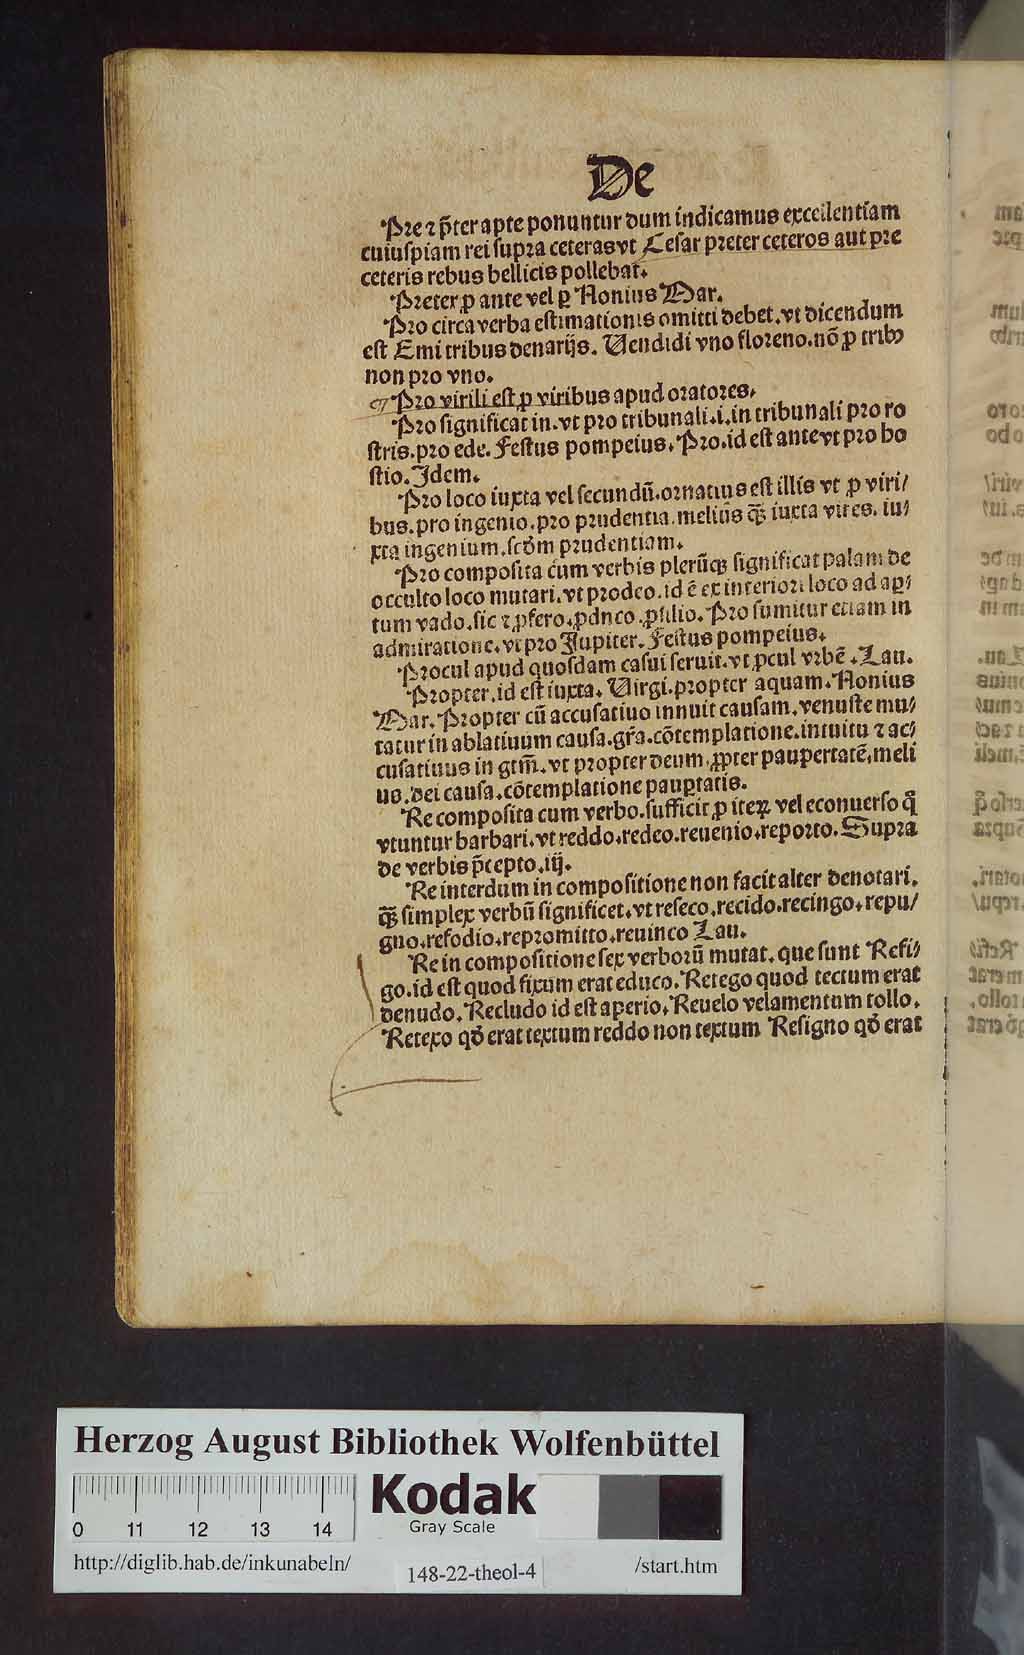 De
Pre ⁊ p̄ter apte ponuntur dum indicamus excellentiam
cuiuspiam rei supra ceteras vt Cesar preter ceteros aut pre
ceteris rebus bellicis pollebat.
Preter ꝓ ante vel ꝑ Nonius Mar.
Pro circa verba estimationis omitti debet. vt dicendum
est Emi tribus denarijs. Uendidi vno floreno. nō ꝓ tribꝰ
non pro vno.
Pro virili est ꝓ viribus apud oratores.
Pro significat in. vt pro tribunali .i. in tribunali pro ro
stris. pro ede. Festus pompeius. Pro. id est ante vt pro ho
stio. Idem.
Pro loco iuxta vel secundū. ornatius est illis vt ꝓ viri/
bus. pro ingenio. pro prudentia. melius qȝ̄ iuxta vires. iu/
xta ingenium. scd̄m prudentiam.
Pro composita cum verbis plerūqȝ significat palam de
occulto loco mutari. vt prodeo. id ē ex interiori loco ad aꝑ/
tum vado. sic ⁊ ꝓfero. ꝓduco. ꝓsilio. Pro sumitur etiam in
admiratione. vt pro Jupiter. Festus pompeius.
Procul apud quosdam casui seruit. vt ꝓcul vrbē. Lau.
Propter. id est iuxta. Uirgi. propter aquam. Nonius
Mar. Propter cū accusatiuo innuit causam. venuste mu/
tatur in ablatiuum causa. gr̄a. cōtemplatione. intuitu ⁊ ac/
cusatiuus in gtm̄. vt propter deum. ꝓpter paupertatē, meli
us. dei causa. cōtemplatione pauꝑtatis.
Re composita cum verbo. sufficit ꝓ iteꝝ vel econuerso q̄
vtuntur barbari. vt reddo. redeo. reuenio. reporto. Supra
de verbis p̄cepto. iij.
Re interdum in compositione non facit alter denotari.
qȝ̄ simplex verbū significet. vt reseco. recido. recingo. repu/
gno. refodio. repromitto. reuinco Lau.
Re in compositione sex verborū mutat. que sunt Refi/
go. id est quod fixum erat educo. Retego quod tectum erat
denudo. Recludo id est aperio. Reuelo velamentum tollo.
Retexo qd̄ erat textum reddo non textum Resigno qd̄ erat
Herzog August Bibliothek Wolfenbüttel
Kodak
Gray Scale
0 11 12 13 14
http://diglib.hab.de/inkunabeln/ 148-22-theol-4 /start.htm